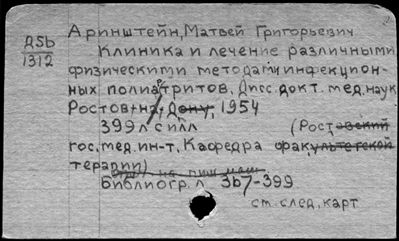 Аринштейн, Матвей Григорьевич
Д5b
1312
Клиника и лечение различными
физическими методами инфекцион-
ных полиартритов. Дисс. докт. мед. наук
Ростов на Дону, 1954
399 л с илл (Ростовский
гос. мед. ин-т, Кафедра факультетской
терапии)
Библиогр. л. 3b7-399
см. след. карт